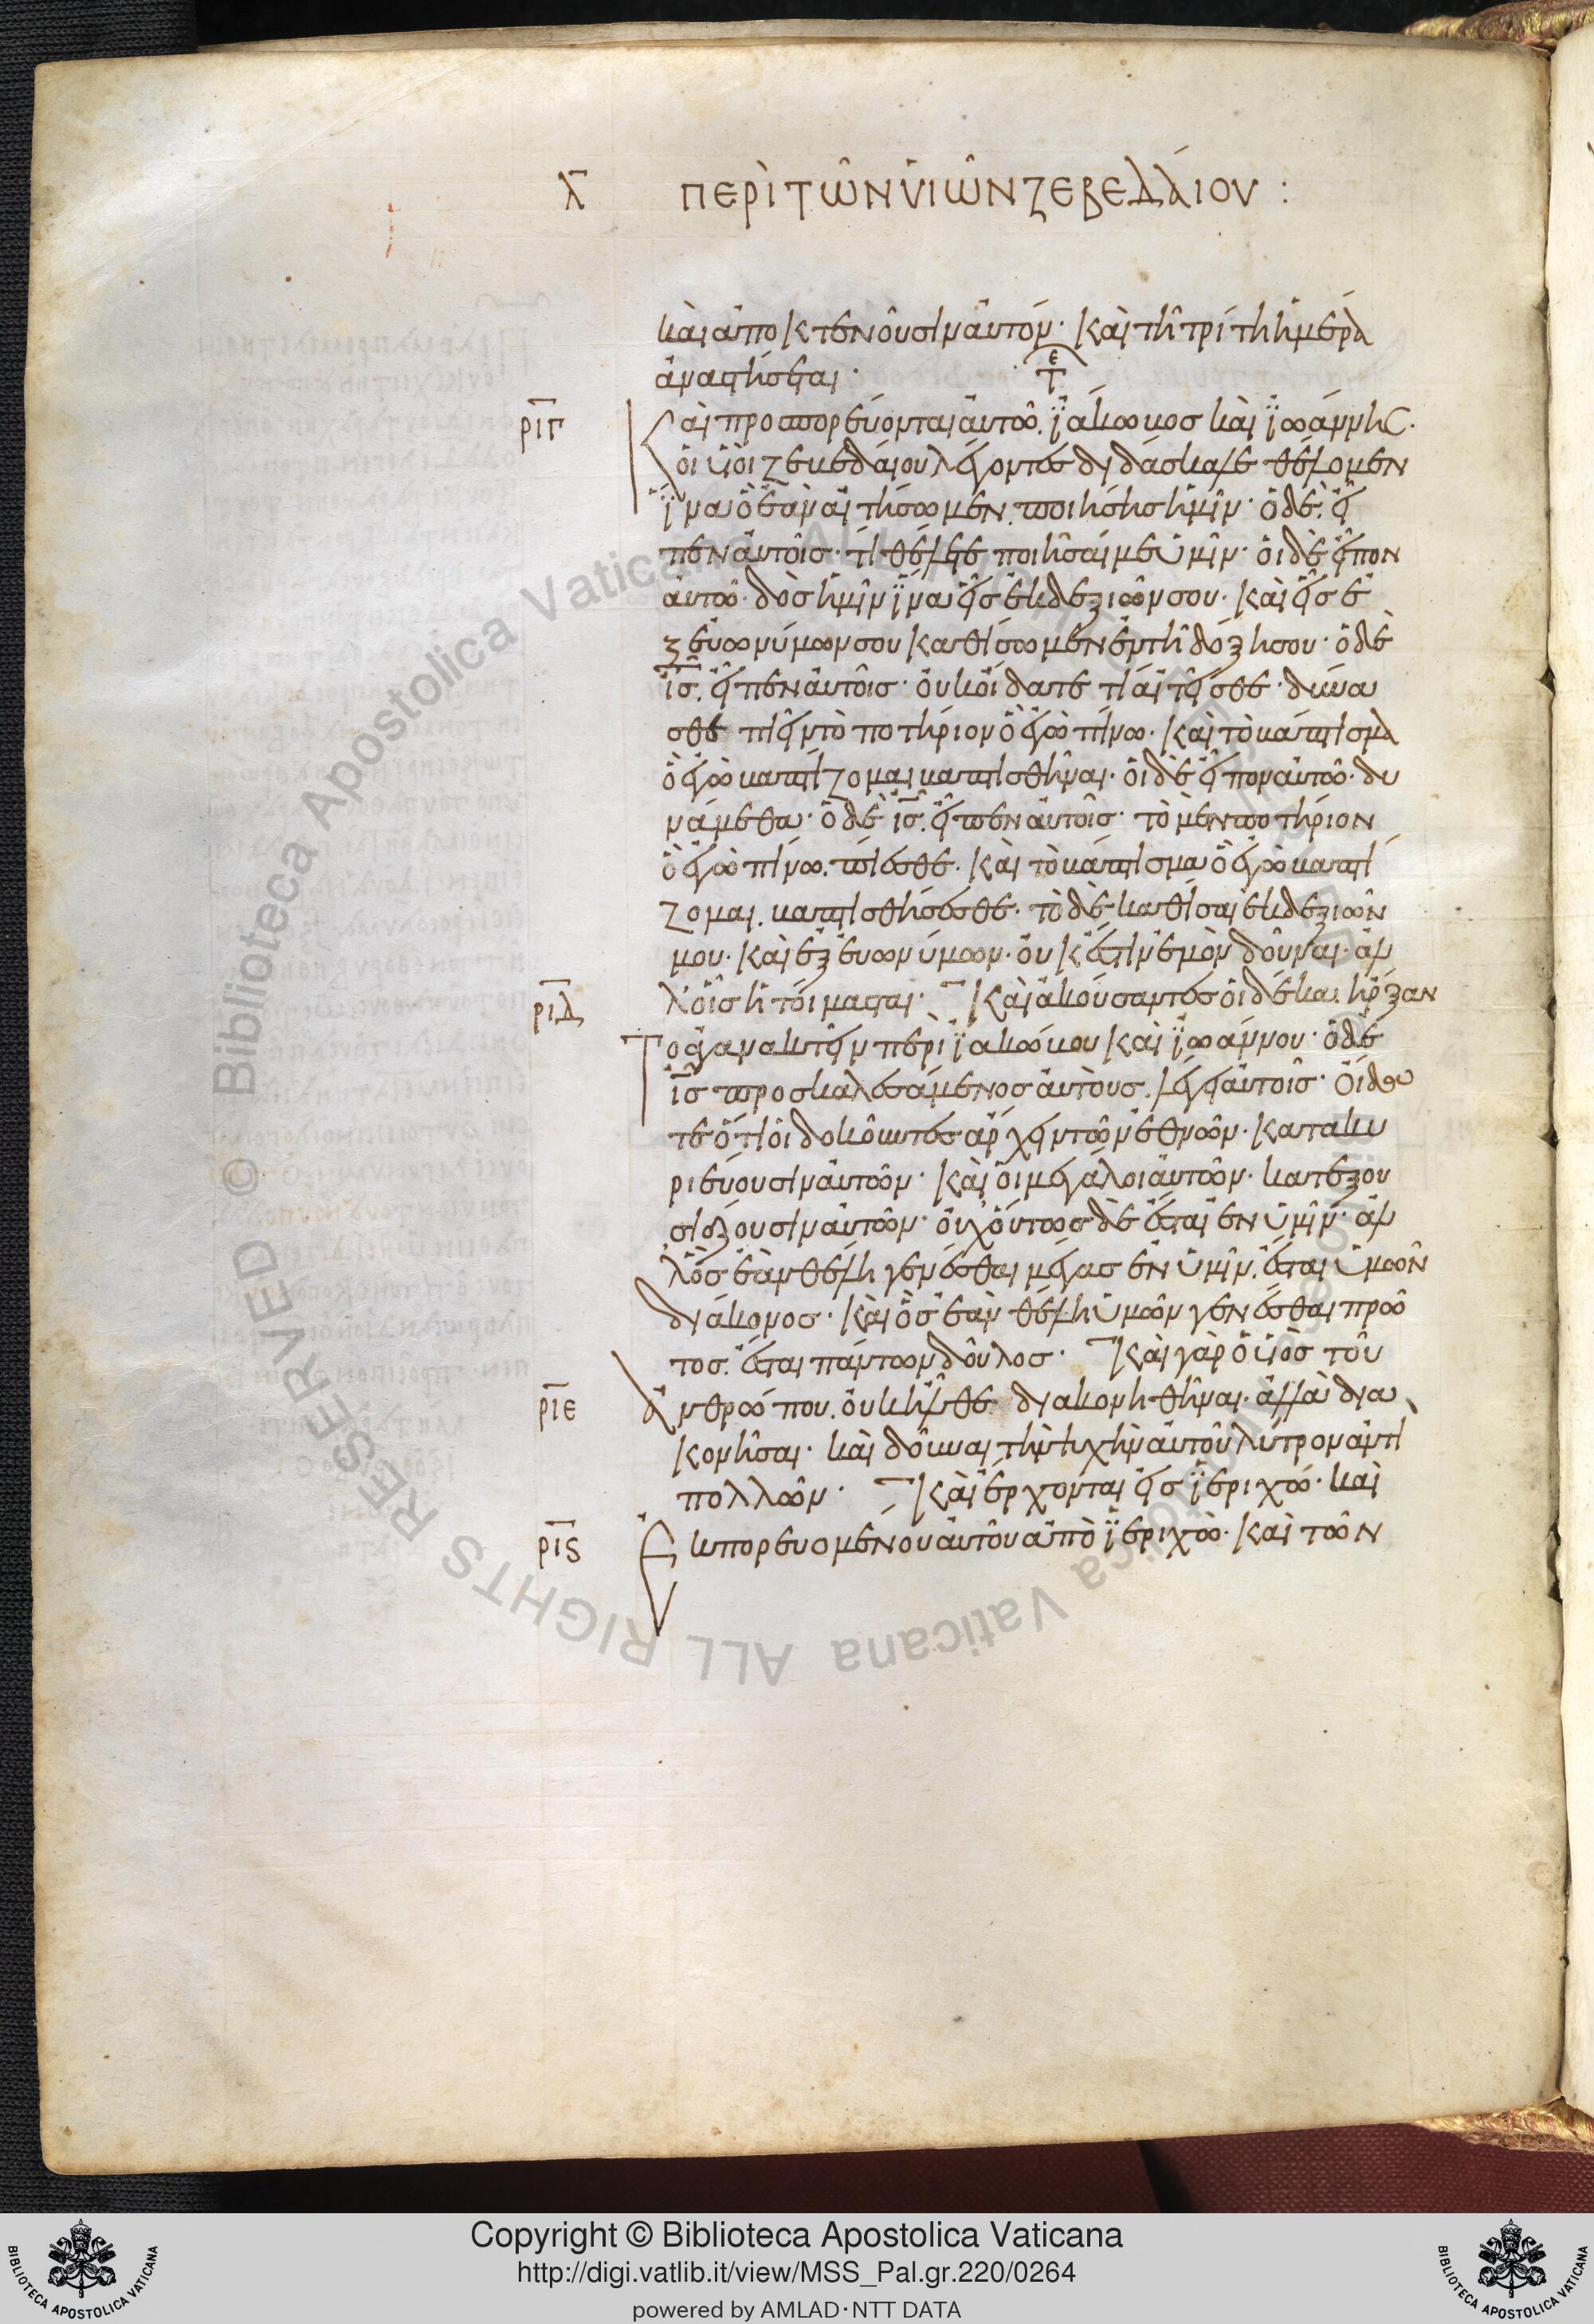 λ ΠΕΡῚ ΤΩ͂Ν ΥἹΩ͂Ν ΖΕΒΕΔΑΊΟΥ :
καὶ ἀποκτενοῦσιν αὐτόν· καὶ τῆ τρίτη ἡμέρα
ἀναστήσεται·
ριγ Καὶ προσπορεύονται αὐτῶ. ϊάκωβος καὶ ϊωάννης.
οἱ υἱοὶ ζεβεδαίου λέγοντες διδάσκαλε θέλομεν
ϊνα ὃ ἐὰν αἰτήσωμεν. ποιήσης ἡμῖν· ὁ δὲ. εἶ
πεν αὐτοῖς· τί θέλετε ποιῆσαί με ὑμῖν· οἱ δὲ εἶπον
αὐτῶ· δὸς ἡμῖν ϊνα εἷς ἐκ δεξιῶν σου· καὶ εἷς ἐ
ξ εὐωνύμων σου καθίσωμεν ἐν τῆ δόξη σου· ὁ δὲ
ις. εἶπεν αὐτοῖς· οὐκ οἴδατε τί αἰτεῖσθε· δύνα
σθε πιεῖν τὸ ποτήριον ὃ ἐγὼ πίνω· καὶ τὸ βάπτισμα
ὃ ἐγὼ βαπτίζομαι βαπτισθῆναι· οἱ δὲ εἶπον αὐτῶ· δυ
νάμεθα· ὁ δὲ ις. εἶπεν αὐτοῖς· τὸ μὲν ποτήριον
ὃ ἐγὼ πίνω. πίεσθε· καὶ τὸ βάπτισμα ὃ ἐγὼ βαπτί
ζομαι. βαπτισθήσεσθε· τὸ δὲ καθίσαι ἐκ δεξιῶν
μου· καὶ ἐξ εὐωνύμων· οὐκ ἔστιν ἐμὸν δοῦναι· ἀλ
ριδ λ' οἷς ἡτοίμασται· Καὶ ἀκούσαντες οἱ δέκα. ἤρξαν
Το ἀγανακτεῖν περὶ ϊακώβου καὶ ϊωάννου· ὁ δὲ
ις προσκαλεσάμενος αὐτοὺς. λέγει αὐτοῖς· οἴδα
τε ὅτι οἱ δοκοῦντες ἄρχειν τῶν ἐθνῶν· κατακυ
ριεύουσιν αὐτῶν· καὶ οἱ μεγάλοι αὐτῶν· κατεξου
σιάζουσιν αὐτῶν· οὐχ οὕτως δὲ ἔσται ἐν ὑμῖν· ἀλ
λ' ὃς ἐὰν θέλη γενέσθαι μέγας ἐν ὑμῖν. ἔσται ὑμῶν
διάκονος· καὶ ὃς ἐὰν θέλη ὑμῶν γενέσθαι πρῶ
τος. ἔσται πάντων δοῦλος· Καὶ γὰρ ὁ υἱὸς τοῦ
ριε Ἀνθρώπου. οὐκ ἦλθε διακονηθῆναι. ἀλλὰ δια
κονῆσαι· καὶ δοῦναι τὴν ψυχὴν αὐτοῦ λύτρον ἀντὶ
πολλῶν· Καὶ ἔρχονται εἰς ϊεριχώ· καὶ
ριϛ Ἐκπορευομένου αὐτοῦ ἀπὸ ϊεριχὼ· καὶ τῶν
Copyright © Biblioteca Apostolica Vaticana
http://digi.vatlib.it/view/MSS_Pal.gr.220/0264
powered by AMLAD·NTT DATA